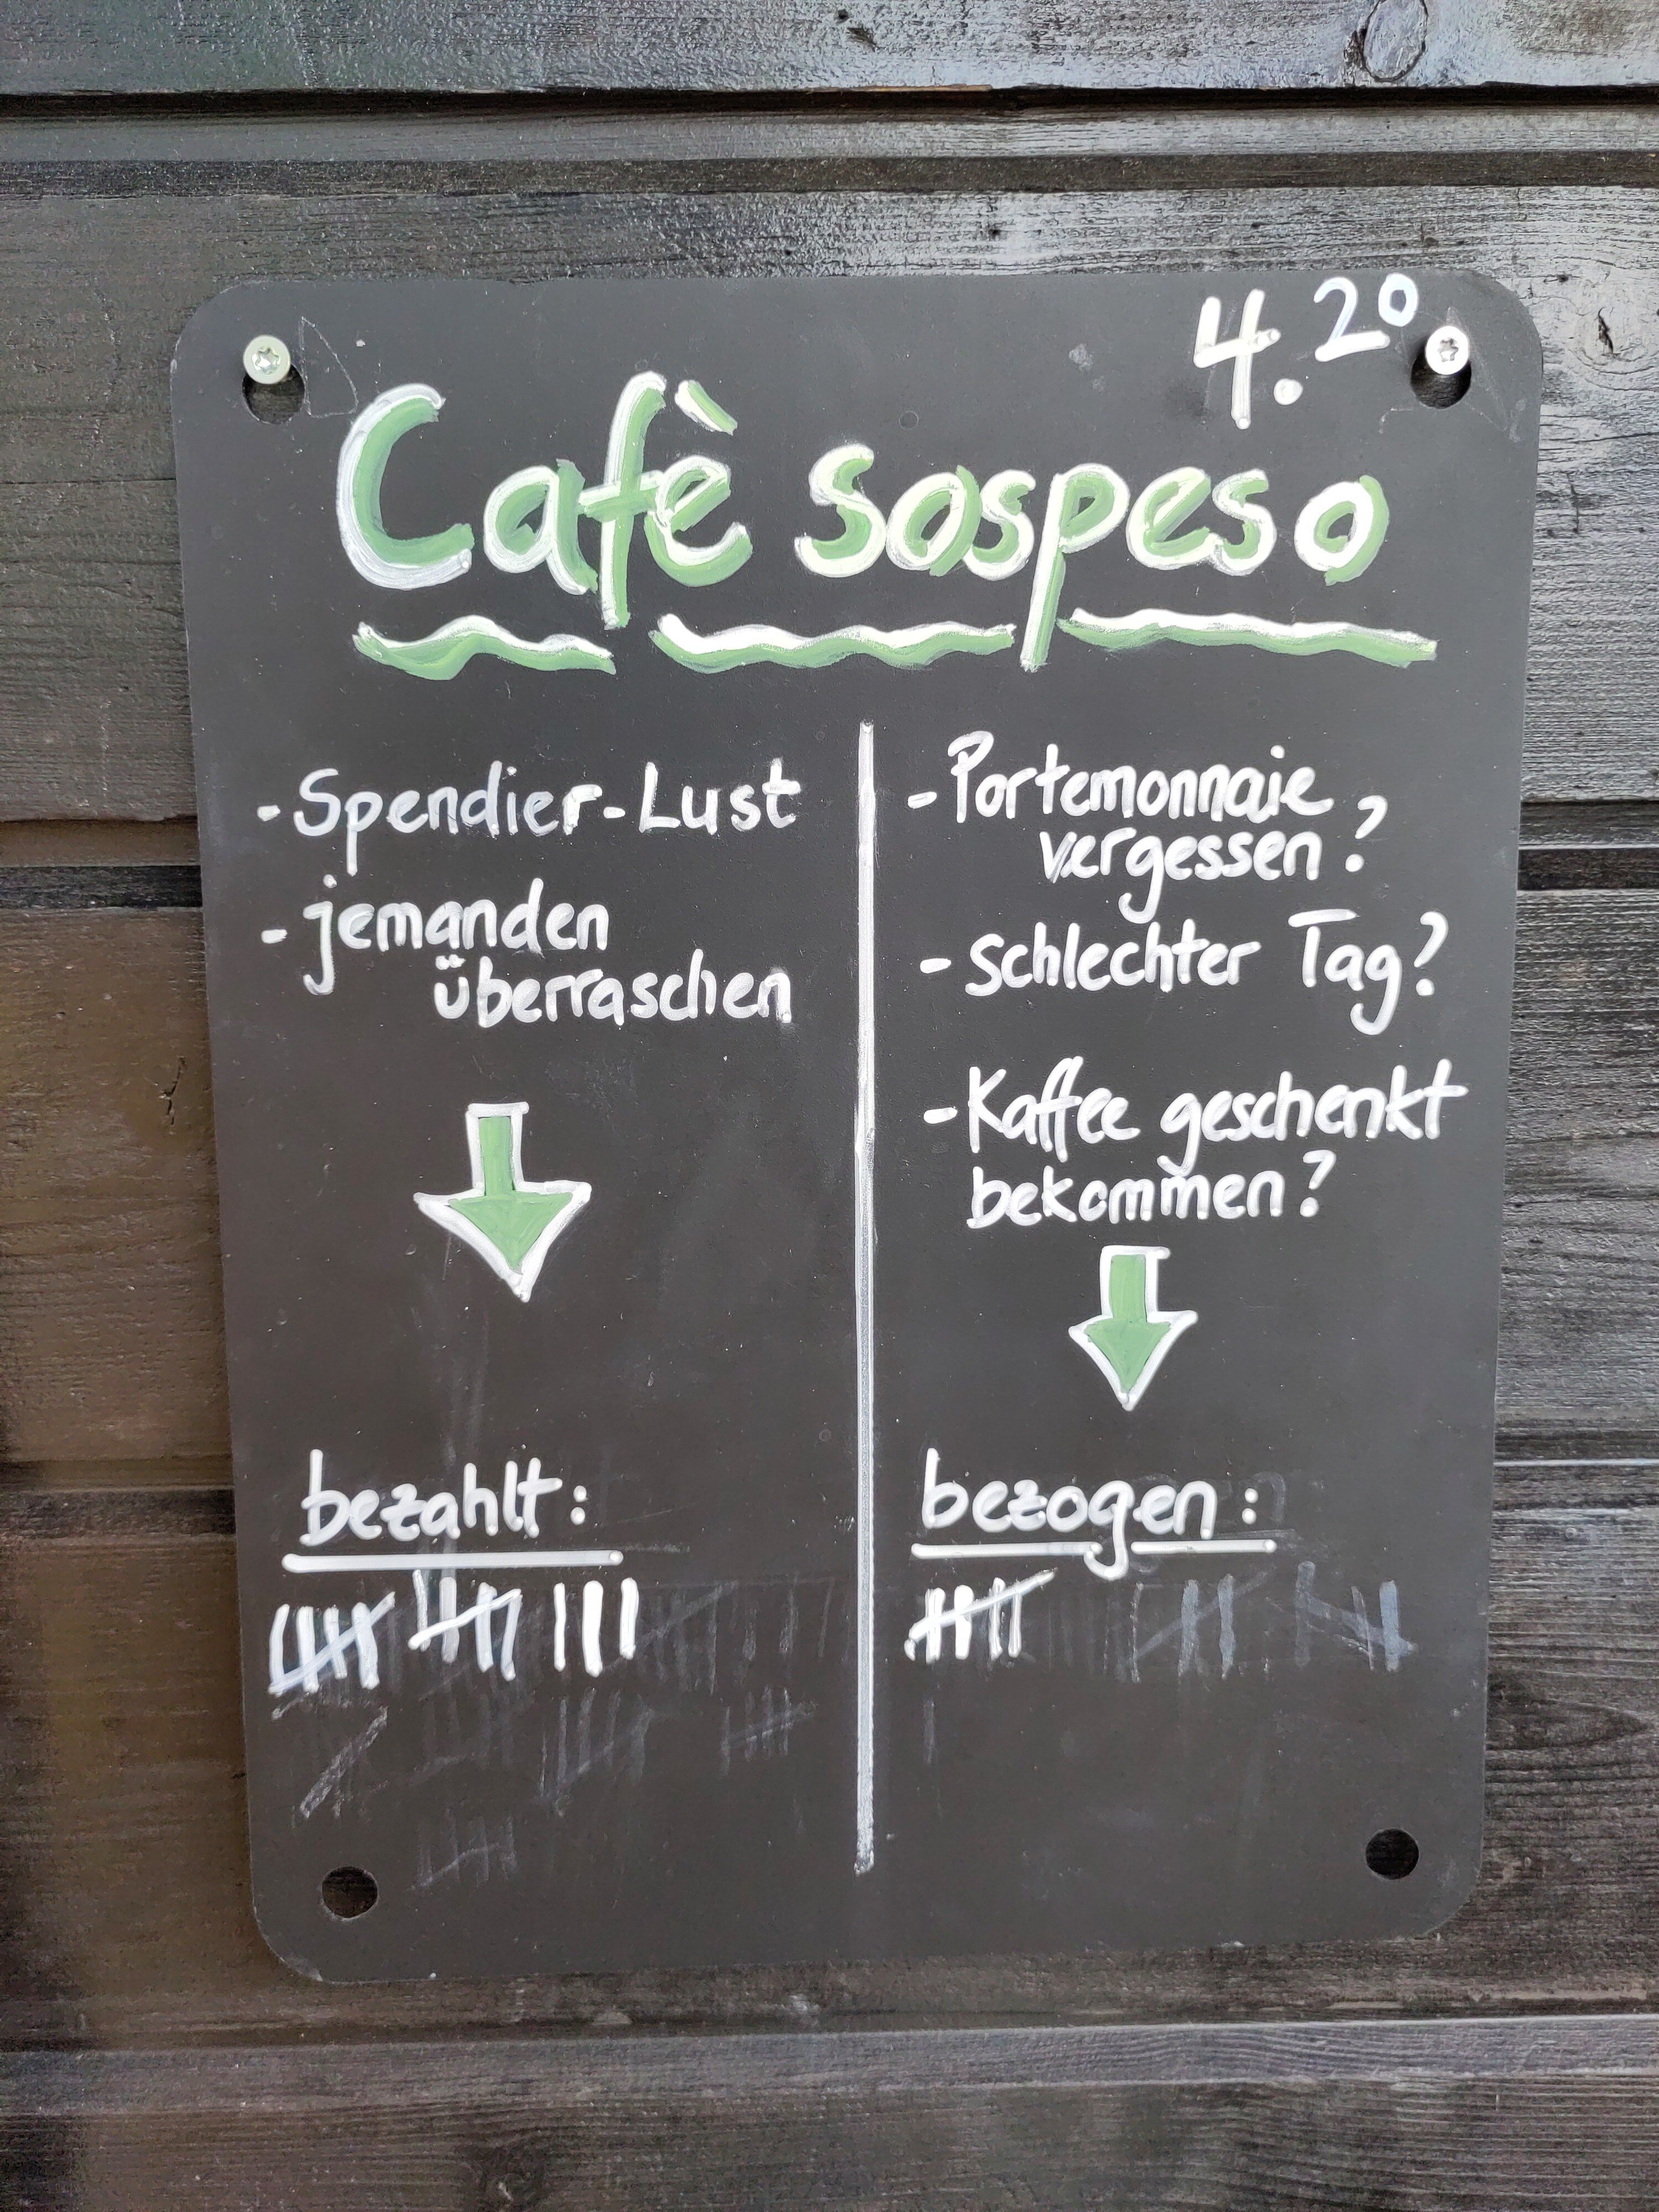 4.20
Cafè sospeso
- Spendier-Lust
- jemanden
überraschen
bezahlt:
- Portemonnaie
vergessen?
- schlechter Tag?
- Kaffee geschenkt
bekommen?
bezogen: